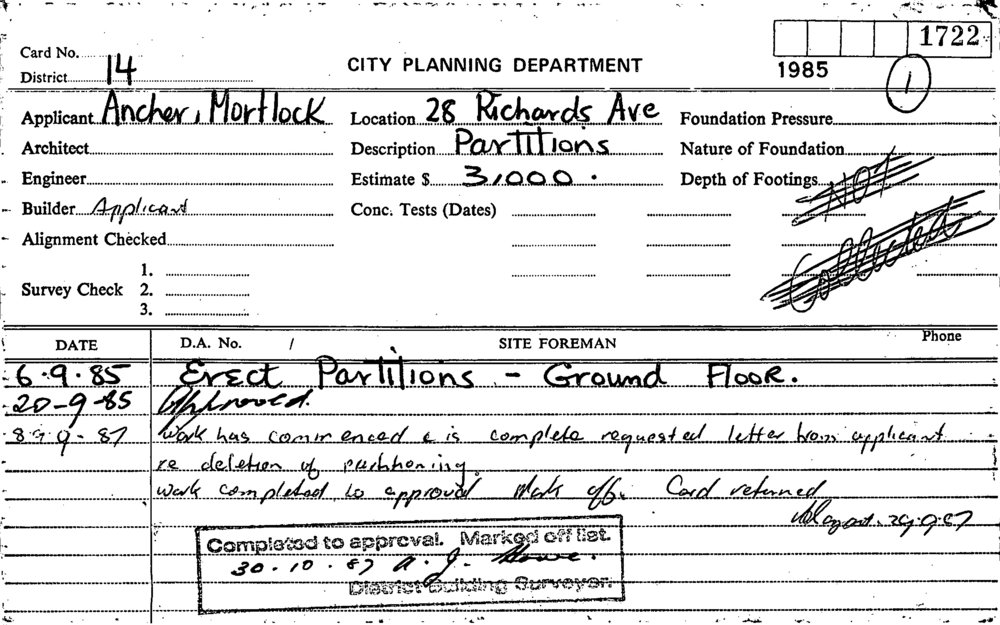 1722
Card No.
District 14
CITY PLANNING DEPARTMENT
1985
1
Applicant Ancher, Mortlock
Location 28 Richards Ave
Foundation Pressure
Architect
Description Partitions
Nature of Foundation
Engineer
Estimate $ 3,000.
Depth of Footings
NOT
Builder Applicant
Conc. Tests (Dates)
Collected
Alignment Checked
Survey Check
1.
2.
3.
DATE
D.A. No. /
SITE FOREMAN
Phone
6.9.85 Erect Partitions - Ground Floor.
20-9-85 Approved.
9-87 Work has commenced & is complete requested letter from applicant
re deletion of partitioning.
Work completed to approval Mark off. Card returned
29.9.87
Completed to approval. Marked off list.
30.10.87 A.J. Howe.
District Building Surveyor.